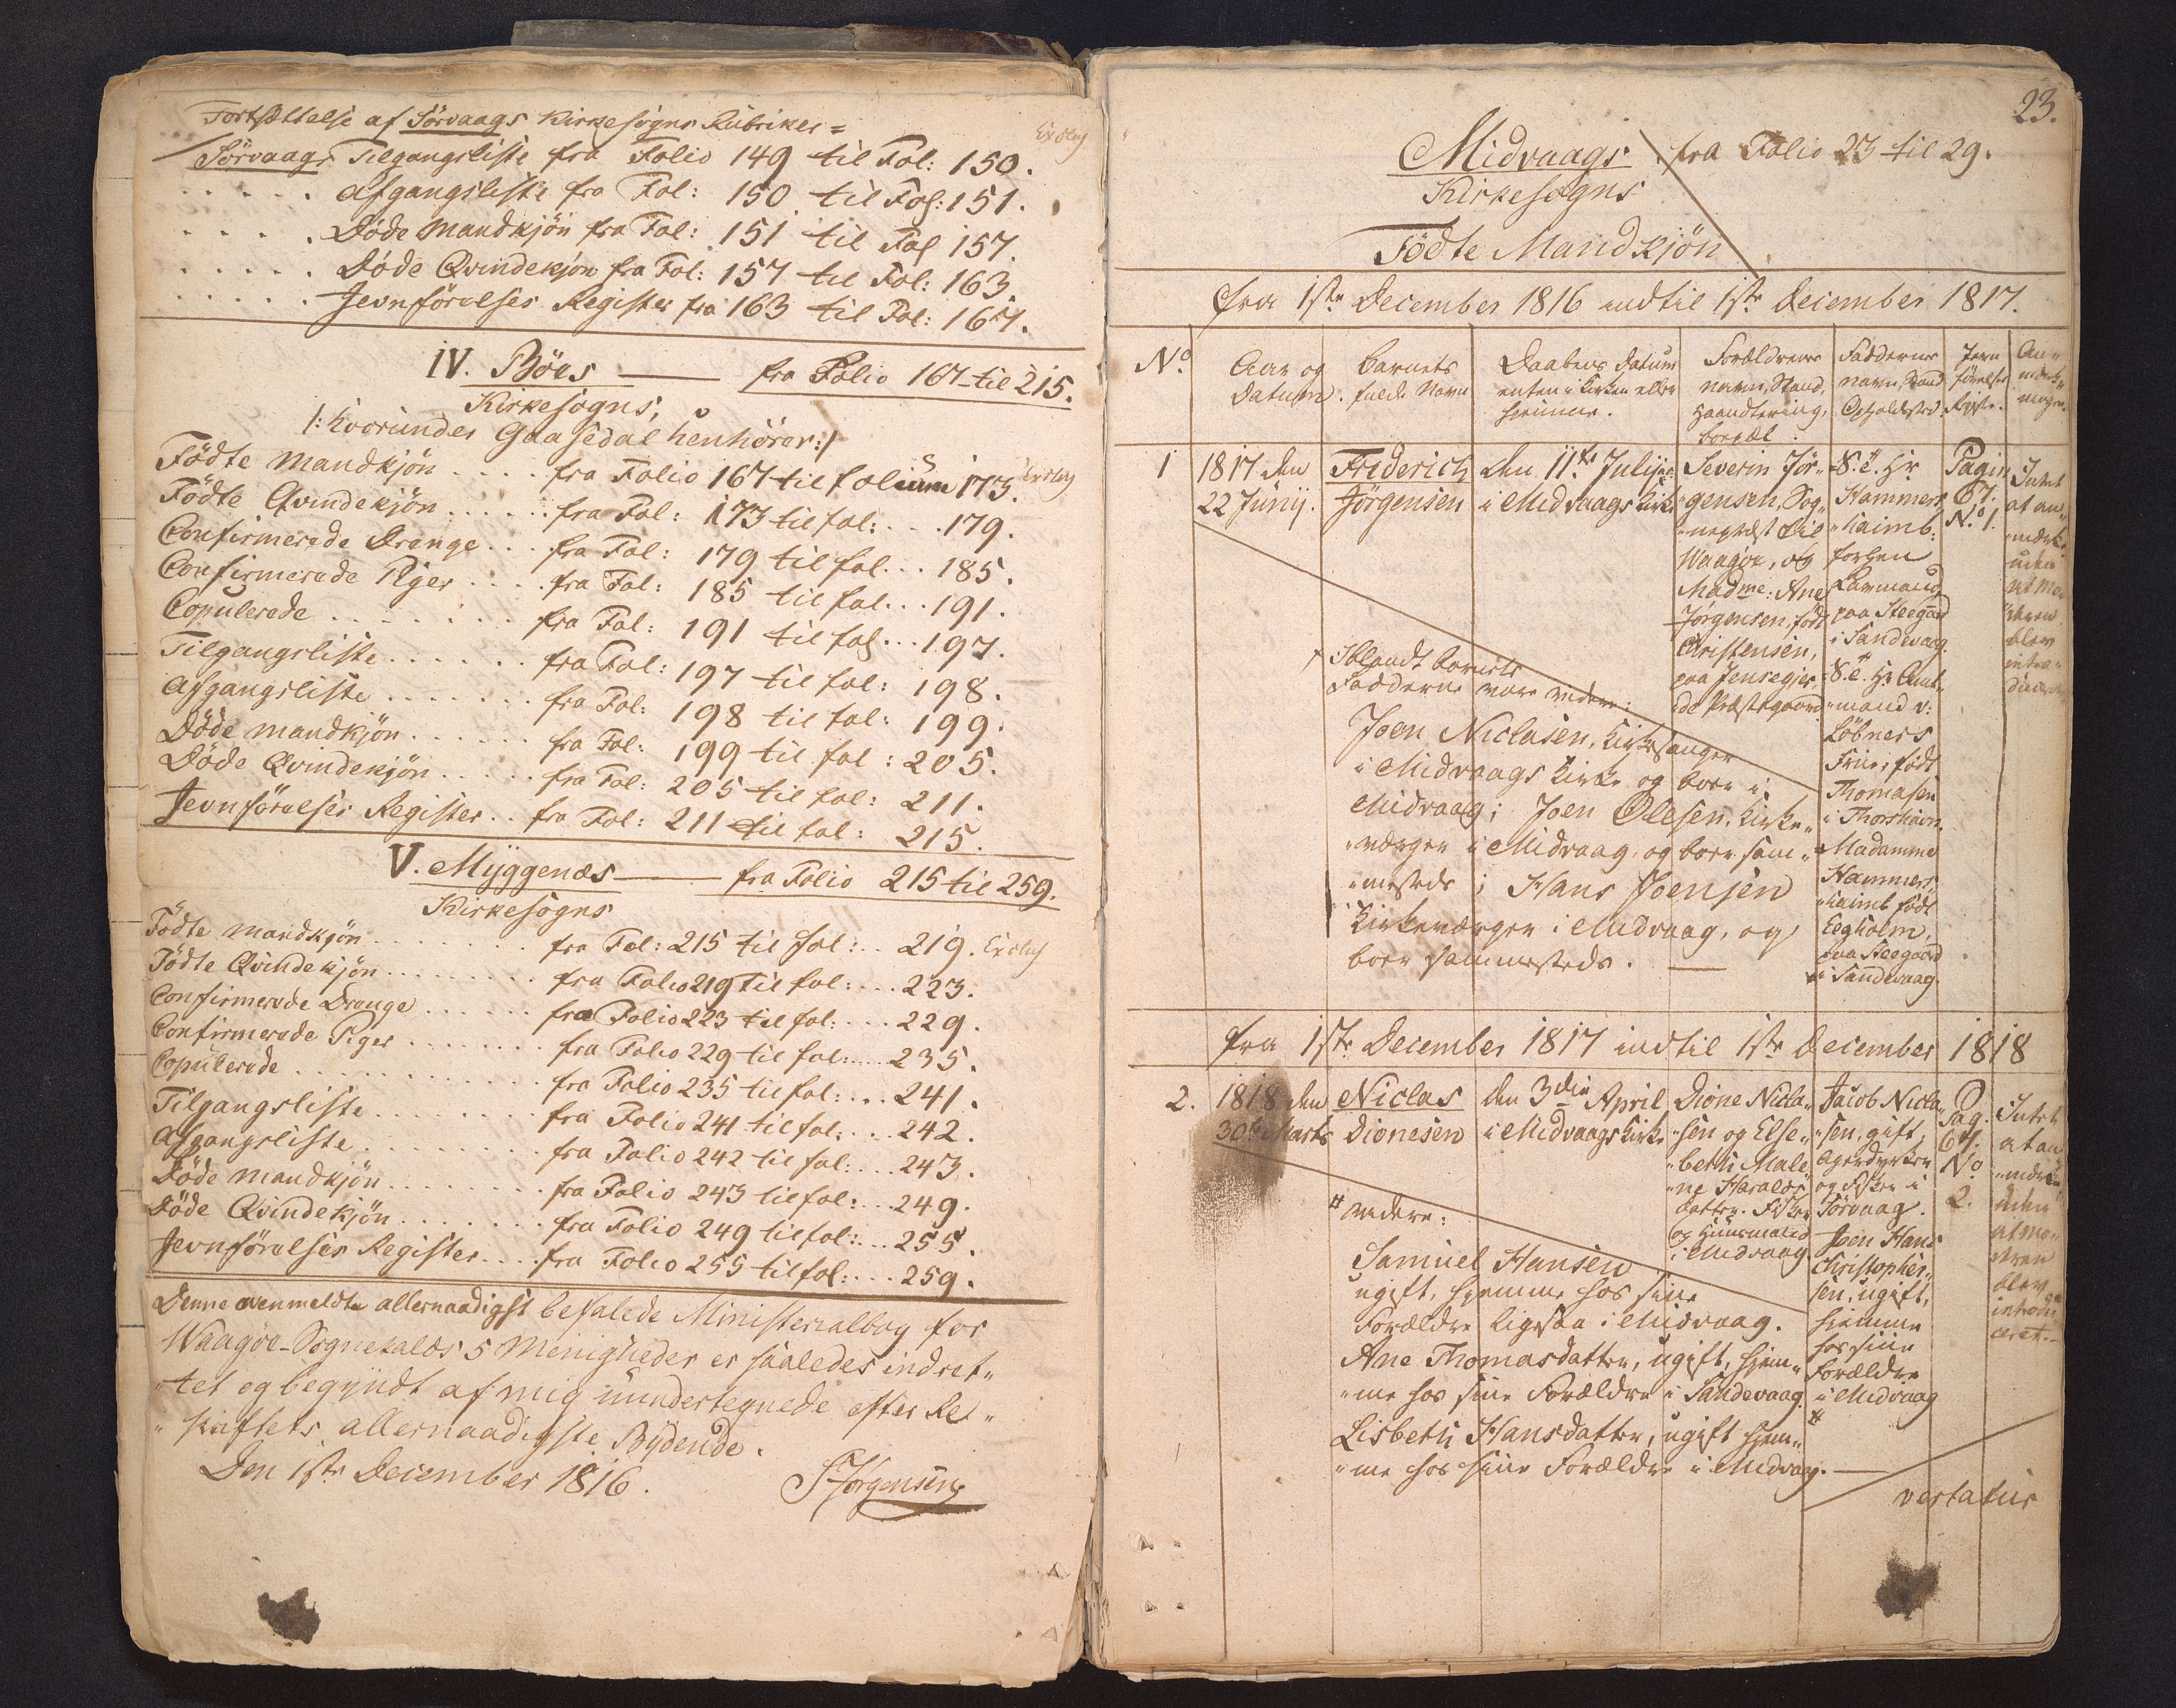 Fortsættelse af Sörvaags Kirkesogns Rubriker =
Sörvaags Tilgangsliste fra Folio 149 til Fol: 150. Exclus
. . . . . Afgangsliste fra Fol: 150 til Fol: 151.
. . . . . Döde Mandkjön fra Fol: 151 til Fol 157.
. . . . . Döde Qvindekjön fra Fol: 157 til Fol: 163.
. . . . . Jevnförelses Register fra 163 til Fol: 167.
IV. Böes — fra Folio 167 til 215.
Kirkesogns,
/: hvorunder Gaasedal henhörer :/
Födte Mandkjön . . . . fra Folio 167 til folium 173. Exclus
Födte Qvindekjön . . . . . fra Fol: 173 til fol: . . . 179.
Confirmerede Drenge . . . fra Fol: 179 til fol . . . 185.
Confirmerede Piger . . . . fra Fol: 185 til fol . . . 191.
Copulerede . . . . . . . fra Fol: 191 til fol . . . 197.
Tilgangsliste . . . . . . fra Fol: 197 til fol: 198.
Afgangsliste . . . . . . fra Fol: 198 til fol: 199.
Döde Mandkjön . . . . . . fra Fol: 199 til fol: 205.
Döde Qvindekjön . . . . . fra Fol: 205 til fol: 211.
Jevnförelses Register . . fra Fol: 211 til fol: 215.
V. Myggenæs — fra Folio 215 til 259.
Kirkesogns
Födte Mandkjön . . . . . . . fra Fol: 215 til fol: . . 219. Exclus
Födte Qvindekjön . . . . . . . . fra Folio 219 til fol: . . . 223.
Confirmerede Drenge . . . . . . fra Folio 223 til fol: . . . 229.
Confirmerede Piger . . . . . . . fra Folio 229 til fol: . . . 235.
Copulerede . . . . . . . . . . fra Folio 235 til fol: . . . 241.
Tilgangsliste . . . . . . . . fra Folio 241 til fol: . . . 242.
Afgangsliste . . . . . . . . fra Folio 242 til fol: . . . 243.
Döde Mandkjön . . . . . . . . fra Folio 243 til fol: . . . 249.
Döde Qvindekjön . . . . . . . fra Folio 249 til fol: . . . 255.
Jevnförelses Register . . . . fra Folio 255 til fol: . . . 259.
Denne ovenmeldte allernaadigst befalede Ministerialbog for
Waagöe-Sognekalds 5 Menigheder er saaledes indret„
„tet og begyndt af mig undertegnede efter Re„
„skriftets allernaadigste Bydende.
Den 1ste December 1816.
SJörgensen
23.
Midvaags fra Folio 23 til 29.
Kirkesogns
Födte Mandkjön
fra 1ste December 1816 indtil 1ste December 1817.
No.
Aar og
Datum.
Barnets
fulde Navn
Daabens Datum
enten i Kirken eller
hjemme.
Forældrenes
Navn, Stand,
Haandtering,
Bopæl.
Faddernes
navn, Stand
Opholdsted.
Jevn
förelses
Regist.
An„
mærk„
ninger.
1
1817 den
22 Junij.
Friderich
Jörgensen
den 11te Julij
i Midvaags Kirke
Severin Jör„
„gensen, Sog„
„nepræst til
Waagöe, og
Madme: Ane
Jörgensen, född
Christensen,
paa Jensegjer„
de Præstegaard.
S. T. Hr
Hammers„
„haimb:
forhen
Laugmand
paa Steegaard
i Sandevaag.
S. T. Hr Amt„
„mand v:
Löbners
Frue, född
Thomasen
i Thorshavn.
Madamme
Hammers„
„haimb född
Eegholm,
paa Steegaard
i Sandevaag.
Pagin
67.
No. 1.
Intet
at an„
„mærke
uden
at Mo„
deren
blev
intro„
duceret
Iblandt Barnets
Faddere vare videre:
Joen Niclasen, Kirkesanger
i Midvaags Kirke og boer i
Midvaag; Joen Olesen, Kirke„
„værger i Midvaag, og boer sam„
„mesteds; Hans Joensen
Kirkeværger i Midvaag, og
boer sammesteds. —
fra 1ste December 1817 indtil 1ste December 1818
2.
1818 den
30te Marts
Niclas
Dionesen
den 3die April
i Midvaags Kirke
Dione Nicla„
„sen og Else„
„beth Male„
„ne Haralds„
datter. Fisker
og Huusmand
i Midvaag
Jacob Nicla„
„sen, gift,
Agerdyrker
og Fisker i
Sörvaag.
Joen Hans
Christopher„
sen, ugift,
hjemme
hos sine
Forældre
i Midvaag
#
Pag.
67.
No
2.
Intet
at an„
„mærke
uden
at Mo„
deren
blev
introdu„
ceret.
# videre:
Samuel Hansen
ugift, hjemme hos sine
Forældre ligesaa i Midvaag.
Ane Thomasdatter, ugift, hjem„
„me hos sine Forældre i Sandevaag.
Lisbeth Hansdatter, ugift hjem„
„me hos sine Forældre i Midvaag. —
vertatur